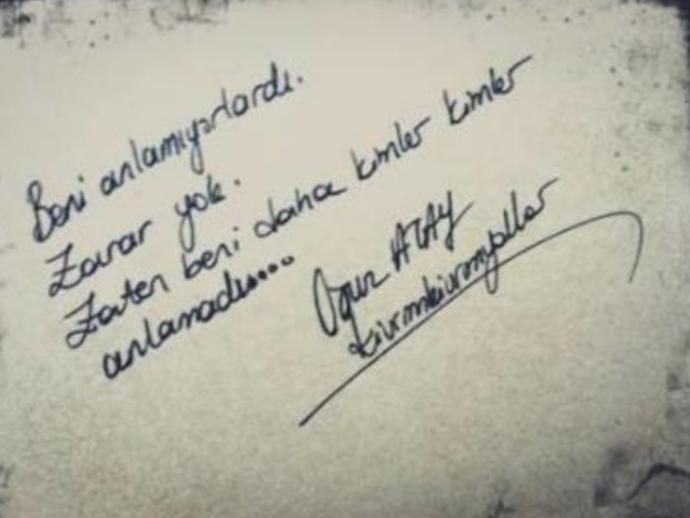 Beni anlamıyorlardı.
Zarar yok.
Zaten beni daha kimler kimler
anlamadı....
Oğuz ATAY